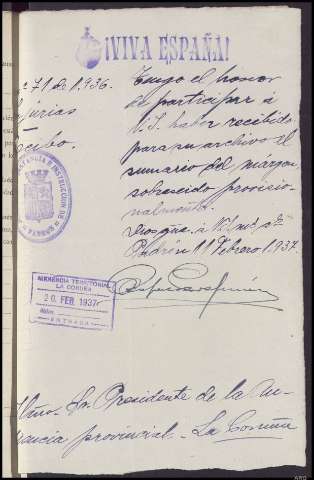 ¡VIVA ESPAÑA!
71 de 1.936.
Tengo el honor
de participar á
V.I. haber recibido
para su archivo el
sumario del margen
sobreseido provisio-
nalmente.
Dios gûe. á V.I. m.s a.s
Padrón 11 Febrero 1.937.
injurias
Recibo.
INSTRUCCION DE
AUDIENCIA TERRITORIAL
LA CORUÑA
20 FEB 1937
Núm.
ENTRADA
Iltmo. Sr. Presidente de la Au-
diencia provincial.- La Coruña